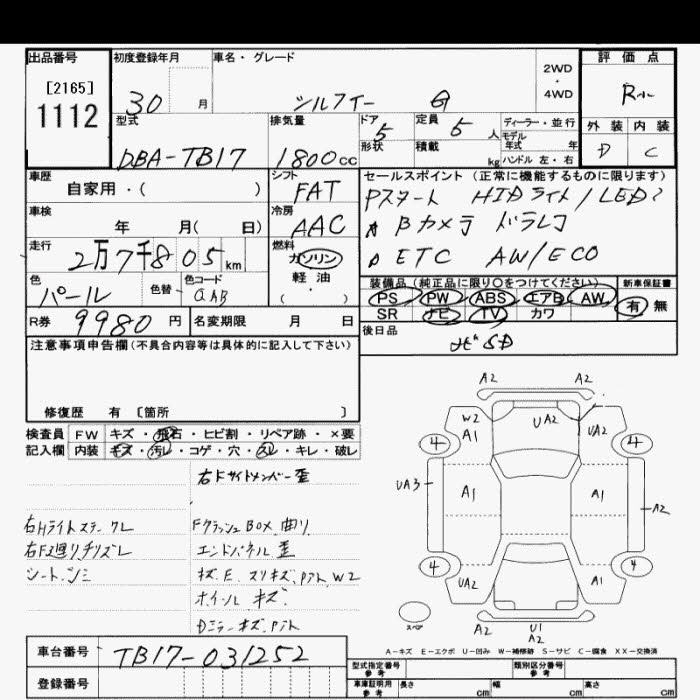 出品番号
[2165]
1112
初度登録年月
30 月
車名・グレード
シルフィー G
2WD
・
4WD
評価点
R小
外装 内装
D C
型式
DBA-TB17
排気量
1800cc
ドア
5
形状
定員
5 人
積載
kg
ディーラー・並行
モデル
年式 年
ハンドル 左・右
車歴
自家用・( )
シフト
FAT
セールスポイント (正常に機能するものに限ります)
Pスタート HIDライト/LED
Bカメラ ドラレコ
ETC AW/ECO
車検
年 月( 日)
冷房
AAC
走行
2万7千805km
燃料
ガソリン
軽油
( ・ )
色
パール
色替
色コード
QAB
装備品 (純正品に限り○をつけてください)
PS PW ABS エアB AW
SR ナビ TV カワ
新車保証書
有 無
R券 9980 円
名変期限 月 日
後日品
ナビSD
注意事項申告欄(不具合内容等は具体的に記入して下さい)
修復歴 有 〔箇所 〕
検査員
記入欄
FW キズ・飛石・ヒビ割・リペア跡・×要
内装 キズ・汚レ・コゲ・穴・スレ・キレ・破レ
右Fサイドメンバー歪
右Hライトステークレ
FクラッシュBOX曲リ
右F廻リチリズレ
エンドパネル歪
シートシミ
キズ、E、スリキズ、P計、W2
ホイールキズ
Dミラーキズ、P計
A2 A2
W2 A1 UA2 UA2
4 4
UA3 A1 A1 A2
4 4
UA2 A1
スペア
A2 U1 A2
A2
A-キズ E-エクボ U-凹み W-補修跡 S-サビ C-腐食 XX-交換済
車台番号
TB17-031252
登録番号
型式指定番号
参考
類別区分番号
参考
車庫証明用
参考
長さ cm
幅 cm
高さ cm